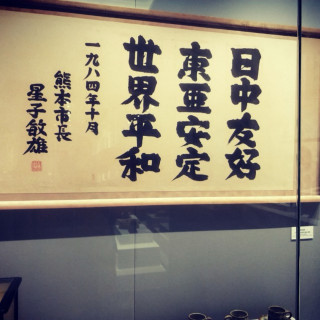 日中友好
東亜安定
世界平和
一九八四年十月
熊本市長
星子敏雄